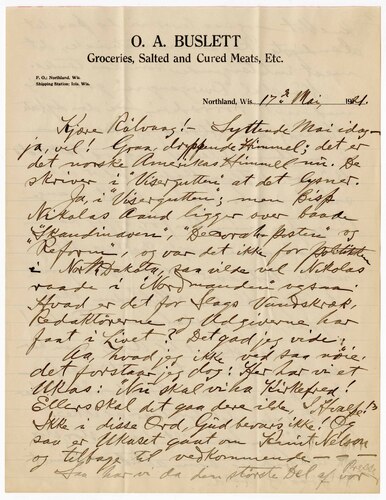 O. A. BUSLETT
Groceries, Salted and Cured Meats, Etc.
P. O.: Northland, Wis.
Shipping Station: Iola, Wis.
Northland, Wis. 17de Mai, 1921.
Kjære Rölvaag! – Syttende Mai idag –
ja, vel! Graa, dryppende Himmel; det er
det norske Amerikas Himmel nu. De
skriver i "Visergutten" at det lysner.
Ja, i "Visergutten"; men Bisp
Nikolas Aand ligger over baade
"Skandinaven", "Decorah-Posten" og
"Reform", og var det ikke for
i North Dakota, saa vilde vel Nikolas
raade i "Normanden" ogsaa.
Hvad er det for Slags Vandskræk,
Redaktörerne og Udgiverne har
faat i Livet? Det gad jeg vide.
Aa, hvad jeg ikke ved saa nöie,
det forstaar jeg dog: Her har vi et
Ukas: "Nu skal vi ha Kirkefred!
Ellers skal det gaa dere ilde,
Ikke i disse Ord, Gud bevars ikke! Og
saa er Ukaset gaat om Knute Nelson
og tilbage til vedkommende –
Saa har vi da den störste Del af vor